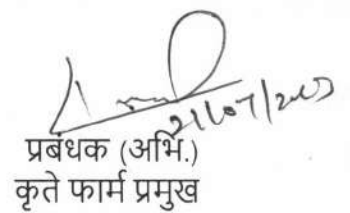 21/07/2023
प्रबंधक (अभि.)
कृते फार्म प्रमुख